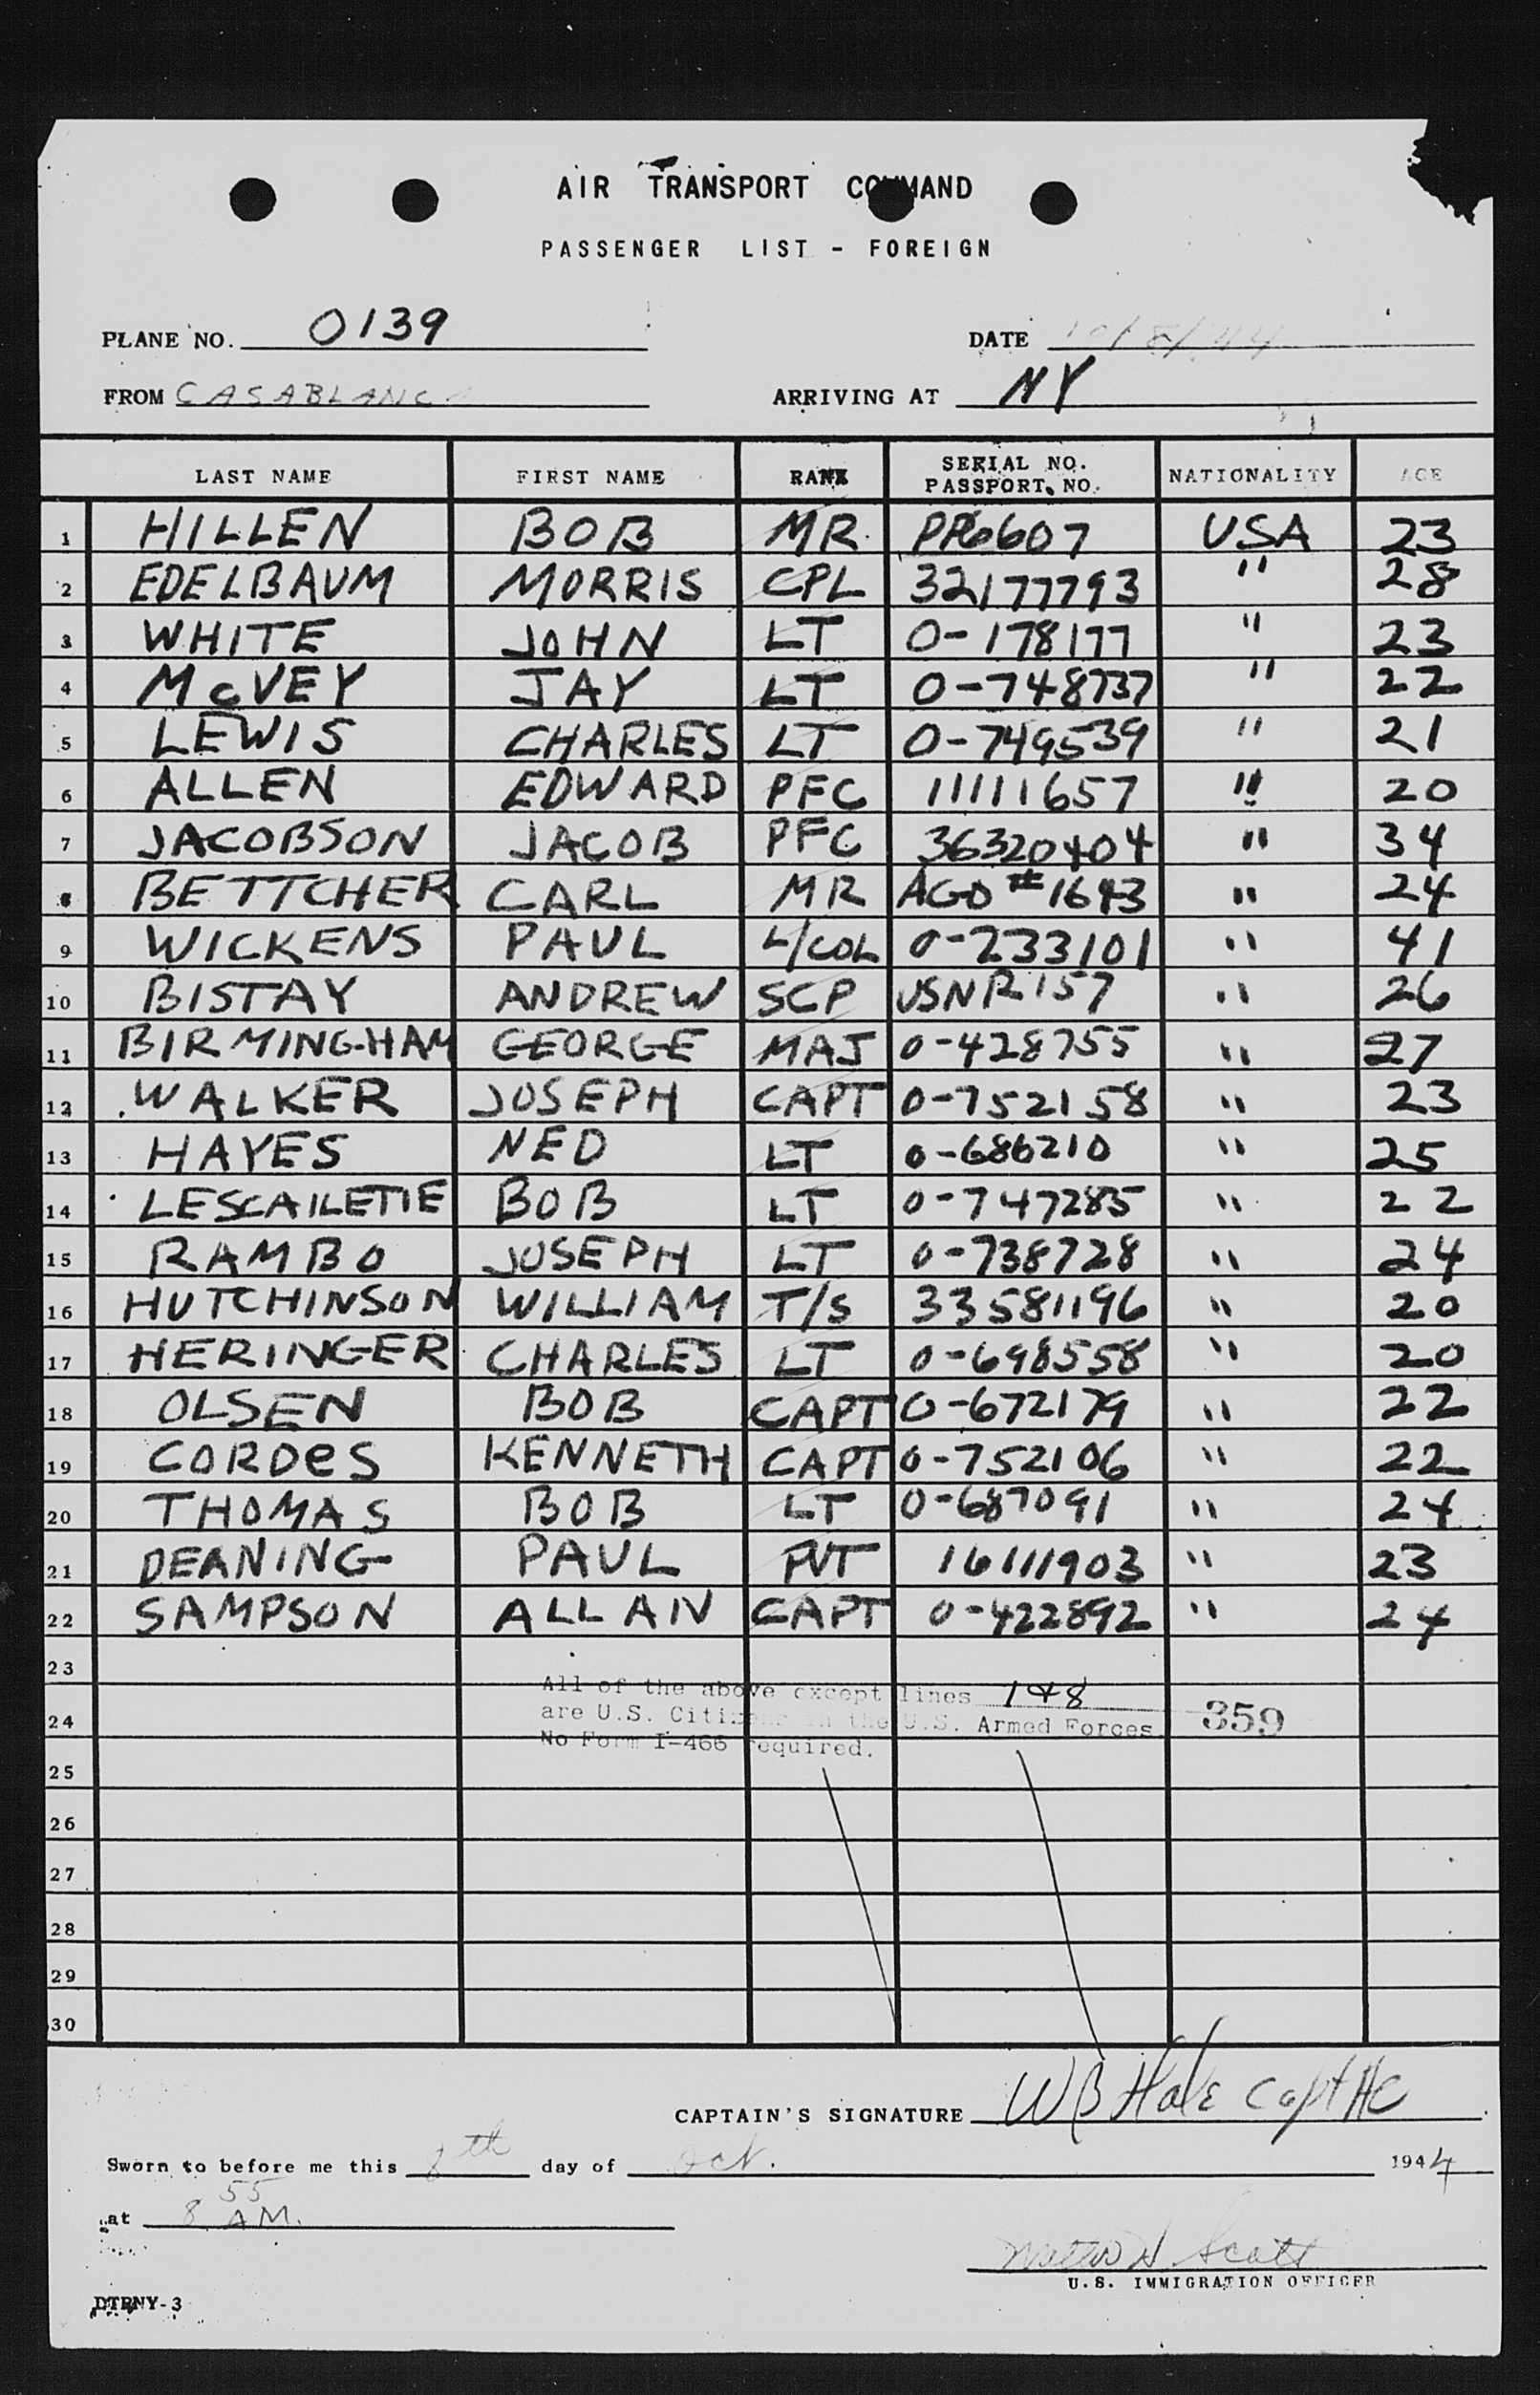 AIR TRANSPORT COMMAND
PASSENGER LIST - FOREIGN
PLANE NO. 0139 DATE 10/8/44
FROM CASABLANCA ARRIVING AT NY
LAST NAME FIRST NAME RANK SERIAL NO. PASSPORT NO. NATIONALITY AGE
1 HILLEN BOB MR. PP6607 USA 23
2 EDELBAUM MORRIS CPL 32177793 " 28
3 WHITE JOHN LT 0-178177 " 23
4 McVEY JAY LT 0-748737 " 22
5 LEWIS CHARLES LT 0-749539 " 21
6 ALLEN EDWARD PFC 11111657 " 20
7 JACOBSON JACOB PFC 36320404 " 34
8 BETTCHER CARL MR AGO #1643 " 24
9 WICKENS PAUL L/COL 0-233101 " 41
10 BISTAY ANDREW SCP USNR 157 " 26
11 BIRMINGHAM GEORGE MAJ 0-428755 " 27
12 WALKER JOSEPH CAPT 0-752158 " 23
13 HAYES NED LT 0-686210 " 25
14 LESCAILETTE BOB LT 0-747285 " 22
15 RAMBO JOSEPH LT 0-738728 " 24
16 HUTCHINSON WILLIAM T/S 33581196 " 20
17 HERINGER CHARLES LT 0-698558 " 20
18 OLSEN BOB CAPT 0-672179 " 22
19 CORDeS KENNETH CAPT 0-752106 " 22
20 THOMAS BOB LT 0-687091 " 24
21 DEANING PAUL PVT 16111903 " 23
22 SAMPSON ALLAN CAPT 0-422892 " 24
23
All of the above except lines 1+8
24 are U.S. Citizens in the U.S. Armed Forces. 359
No Form I-466 required.
25
26
27
28
29
30
CAPTAIN'S SIGNATURE WB Hale Capt AC
Sworn to before me this 8th day of Oct. 1944
at 8 55 AM.
Scott
U.S. IMMIGRATION OFFICER
DTRNY-3